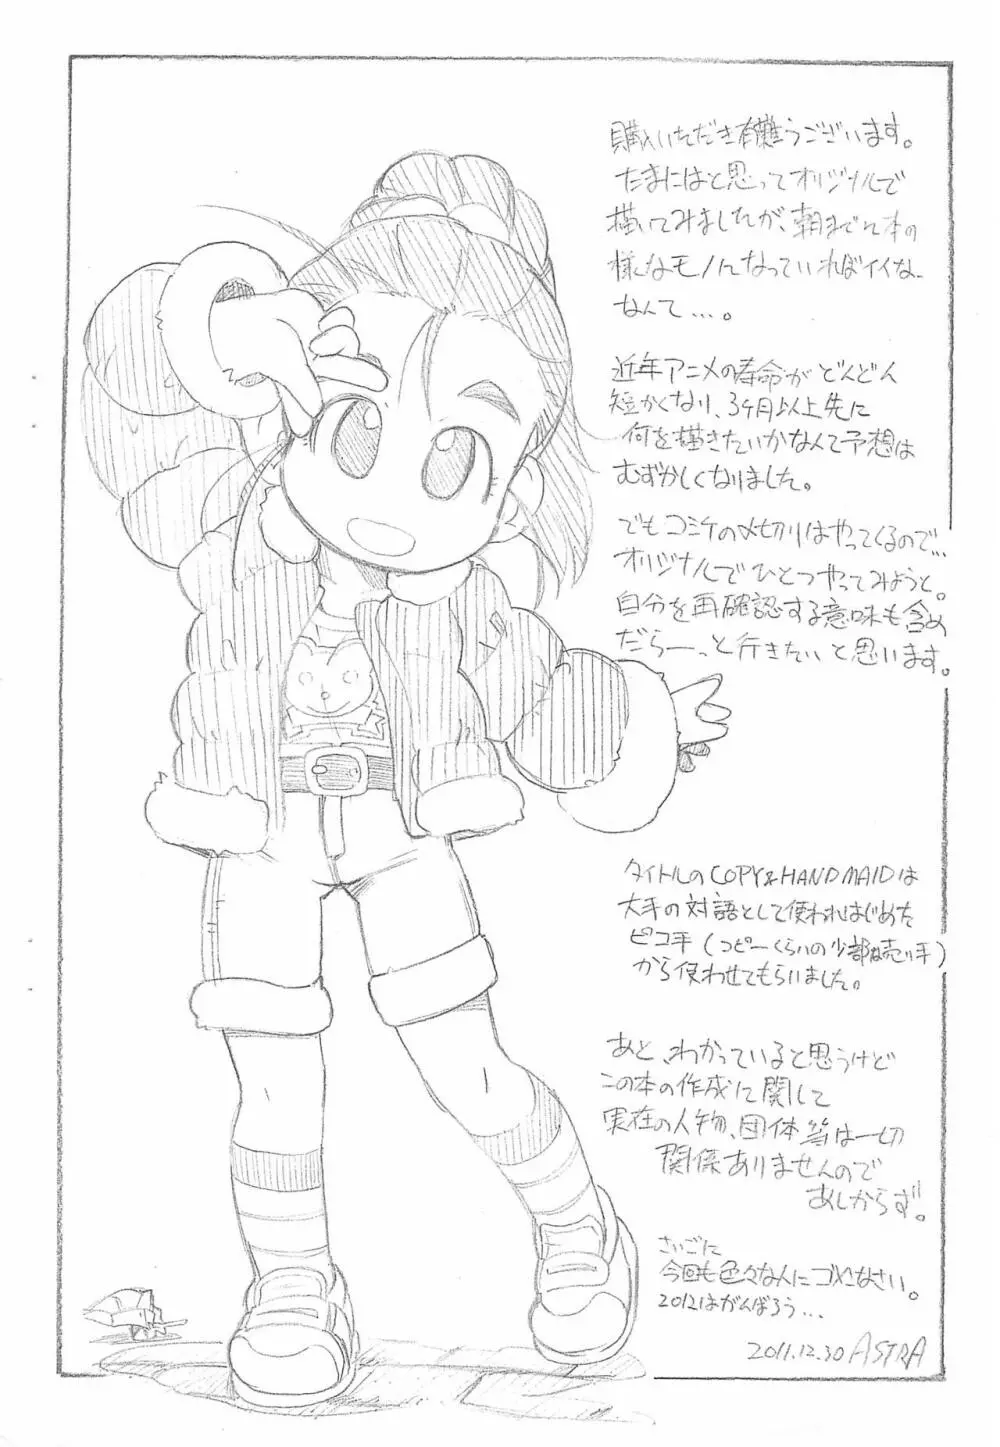 購入いただき有難うございます。
たまにはと思ってオリジナルで
描いてみましたが、朝までに本の
様なモノになっていればイイな、
なんて…。
近年アニメの寿命がどんどん
短かくなり、3ヶ月以上先に
何を描きたいかなんて予想は
むずかしくなりました。
でもコミケの〆切りはやってくるので…
オリジナルでひとつやってみようと。
自分を再確認する意味も含め
だらーっと行きたいと思います。
タイトルのCOPY&HANDMAIDは
大手の対語として使われはじめた
ピコ手(コピーくらいの少部数売り手)
から使わせてもらいました。
あと、わかっていると思うけど
この本の作成に関して
実在の人物、団体等は一切
関係ありませんので
あしからず。
さいごに
今回も色々な人にゴメンなさい。
2012はがんばろう…
2011.12.30 ASTRA